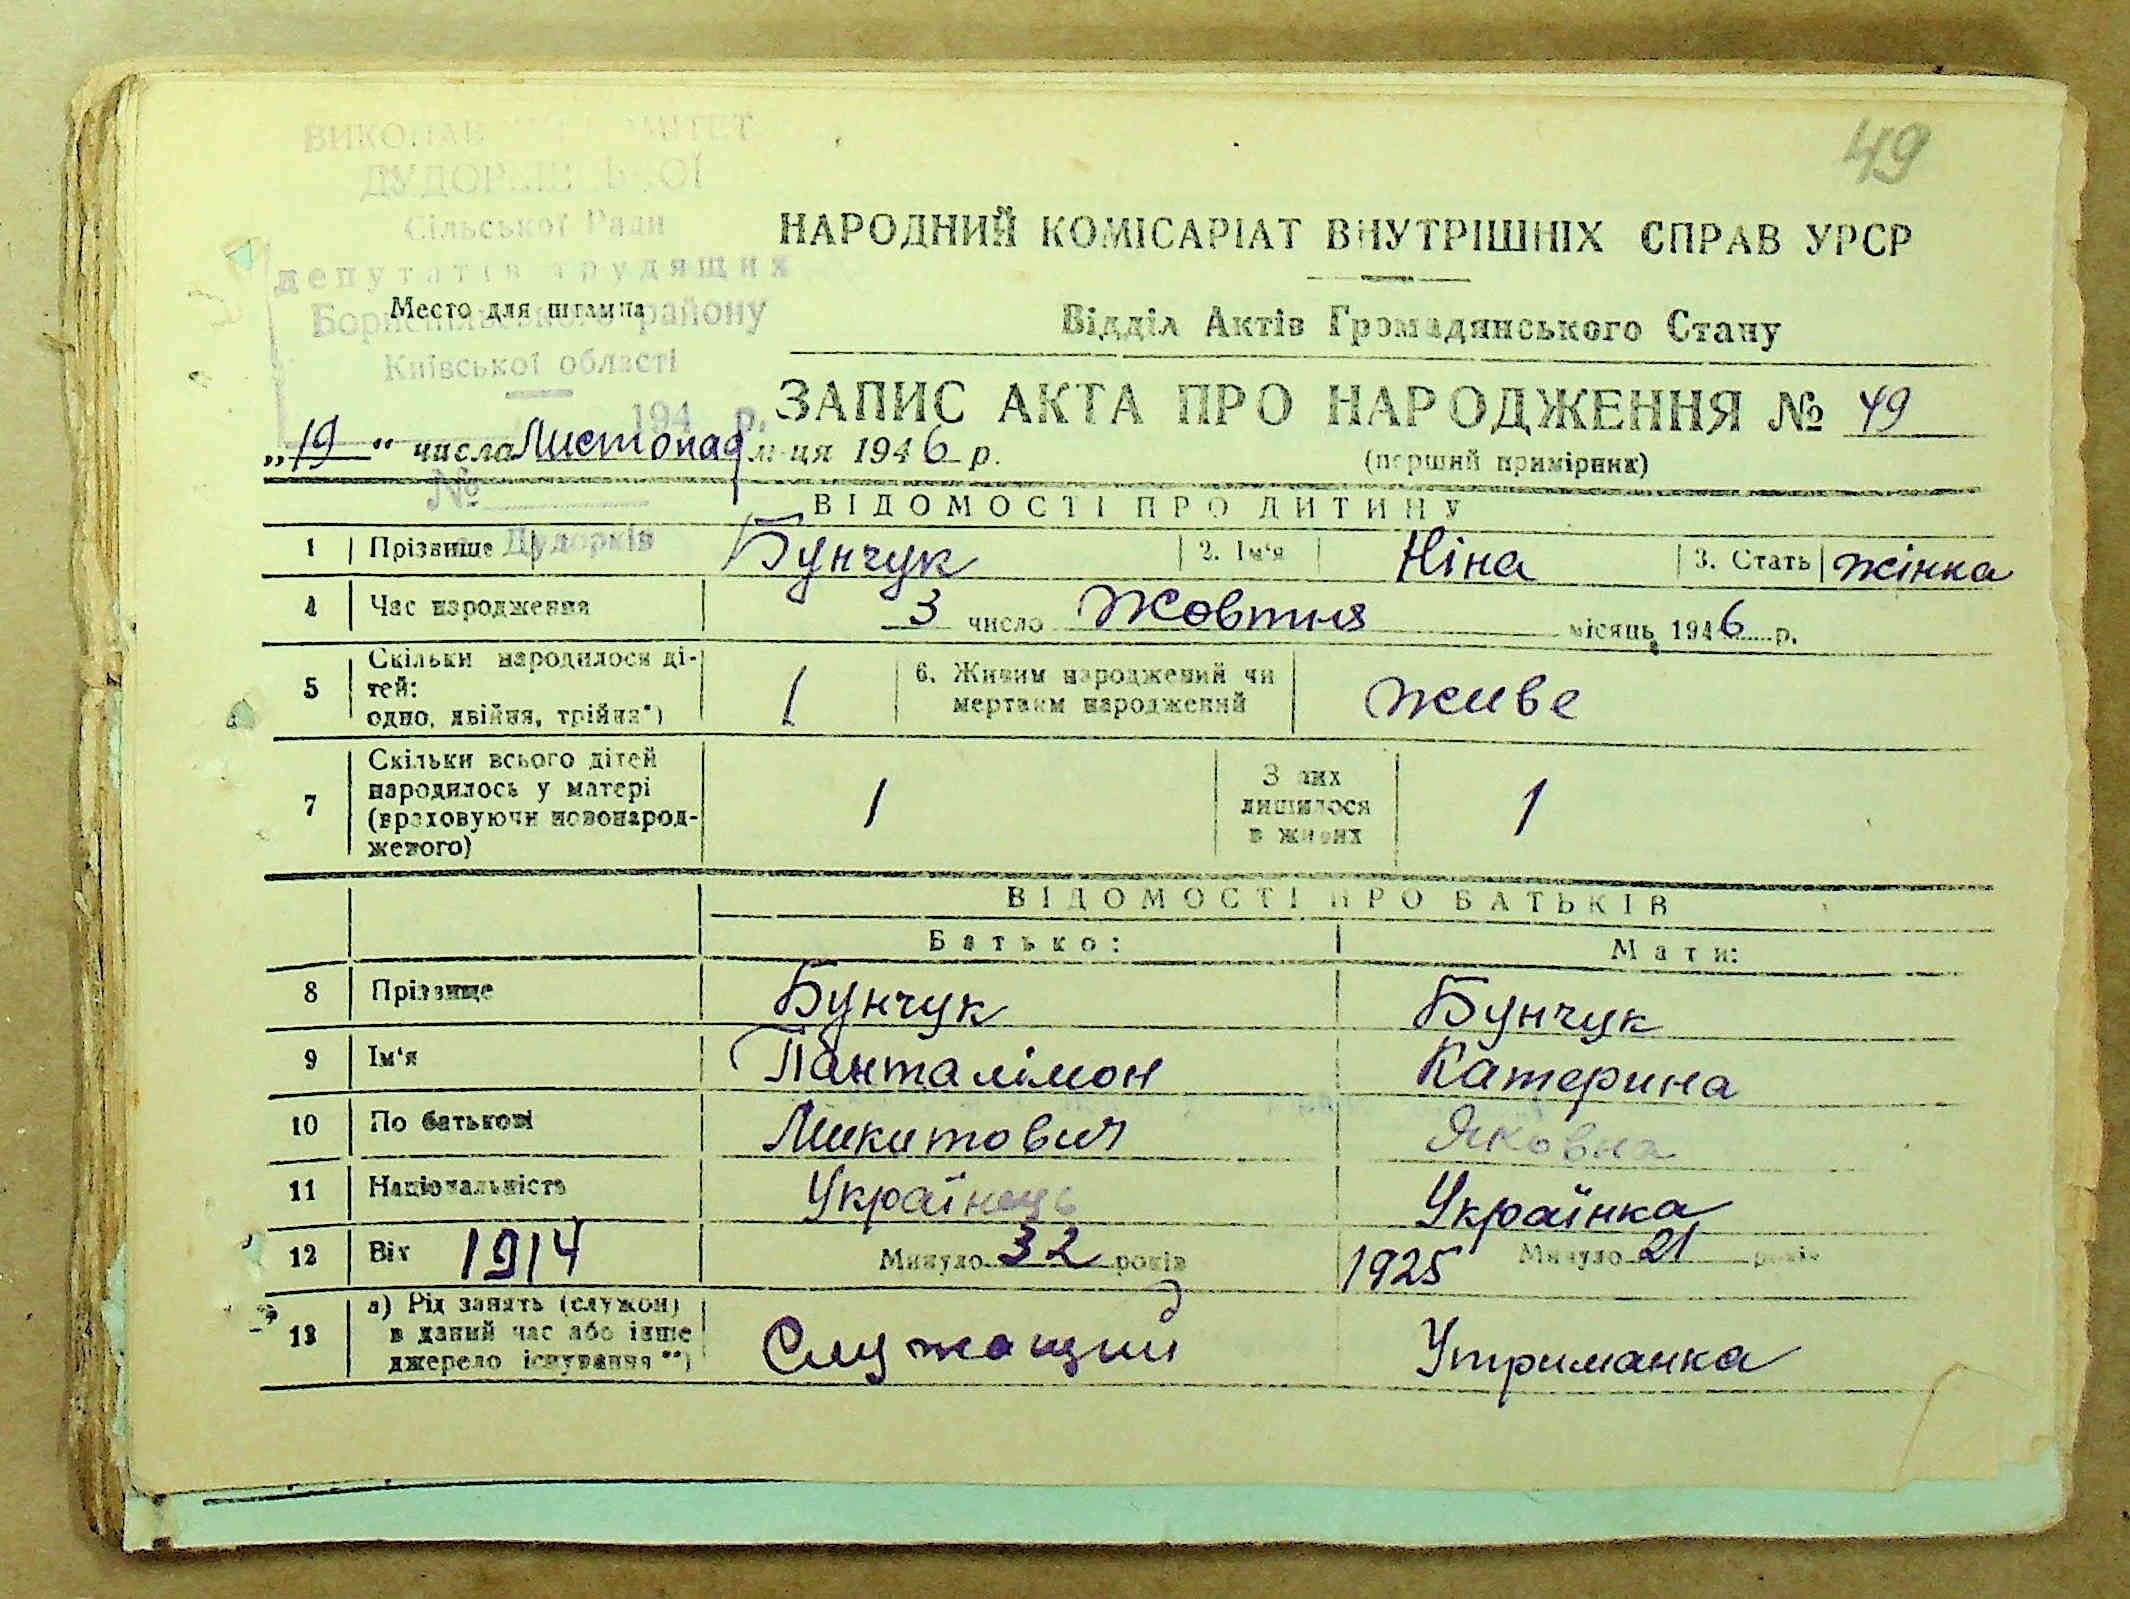 49
ДУДОР
Сільської Ради
депутатів трудящих
Бориспільського району
Київської області
194 р.
№
Дудорків
НАРОДНИЙ КОМІСАРІАТ ВНУТРІШНІХ СПРАВ УРСР
Место для штампа
Відділ Актів Громадянського Стану
ЗАПИС АКТА ПРО НАРОДЖЕННЯ № 49
„19“ числа Листопад м-ця 1946 р.
(перший примірник)
ВІДОМОСТІ ПРО ДИТИНУ
1 Прізвище Бунчук 2. Ім‘я Ніна 3. Стать жінка
4 Час народження 3 число Жовтня місяць 1946 р.
5 Скільки народилося ді-
тей:
одно, двійня, трійня*) 1 6. Живим народжений чи
мертвим народжений живе
7 Скільки всього дітей
народилось у матері
(враховуючи новонарод-
женого) 1 З них
лишилося
в живих 1
ВІДОМОСТІ ПРО БАТЬКІВ
Батько: Мати:
8 Прізвище Бунчук Бунчук
9 Ім‘я Панталімон Катерина
10 По батькові Микитович Яковна
11 Національність Українець Українка
12 Вік 1914 Минуло 32 років 1925 Минуло 21 років
13 а) Рід занять (служби)
в даний час або інше
джерело існування**) Служащий Утриманка